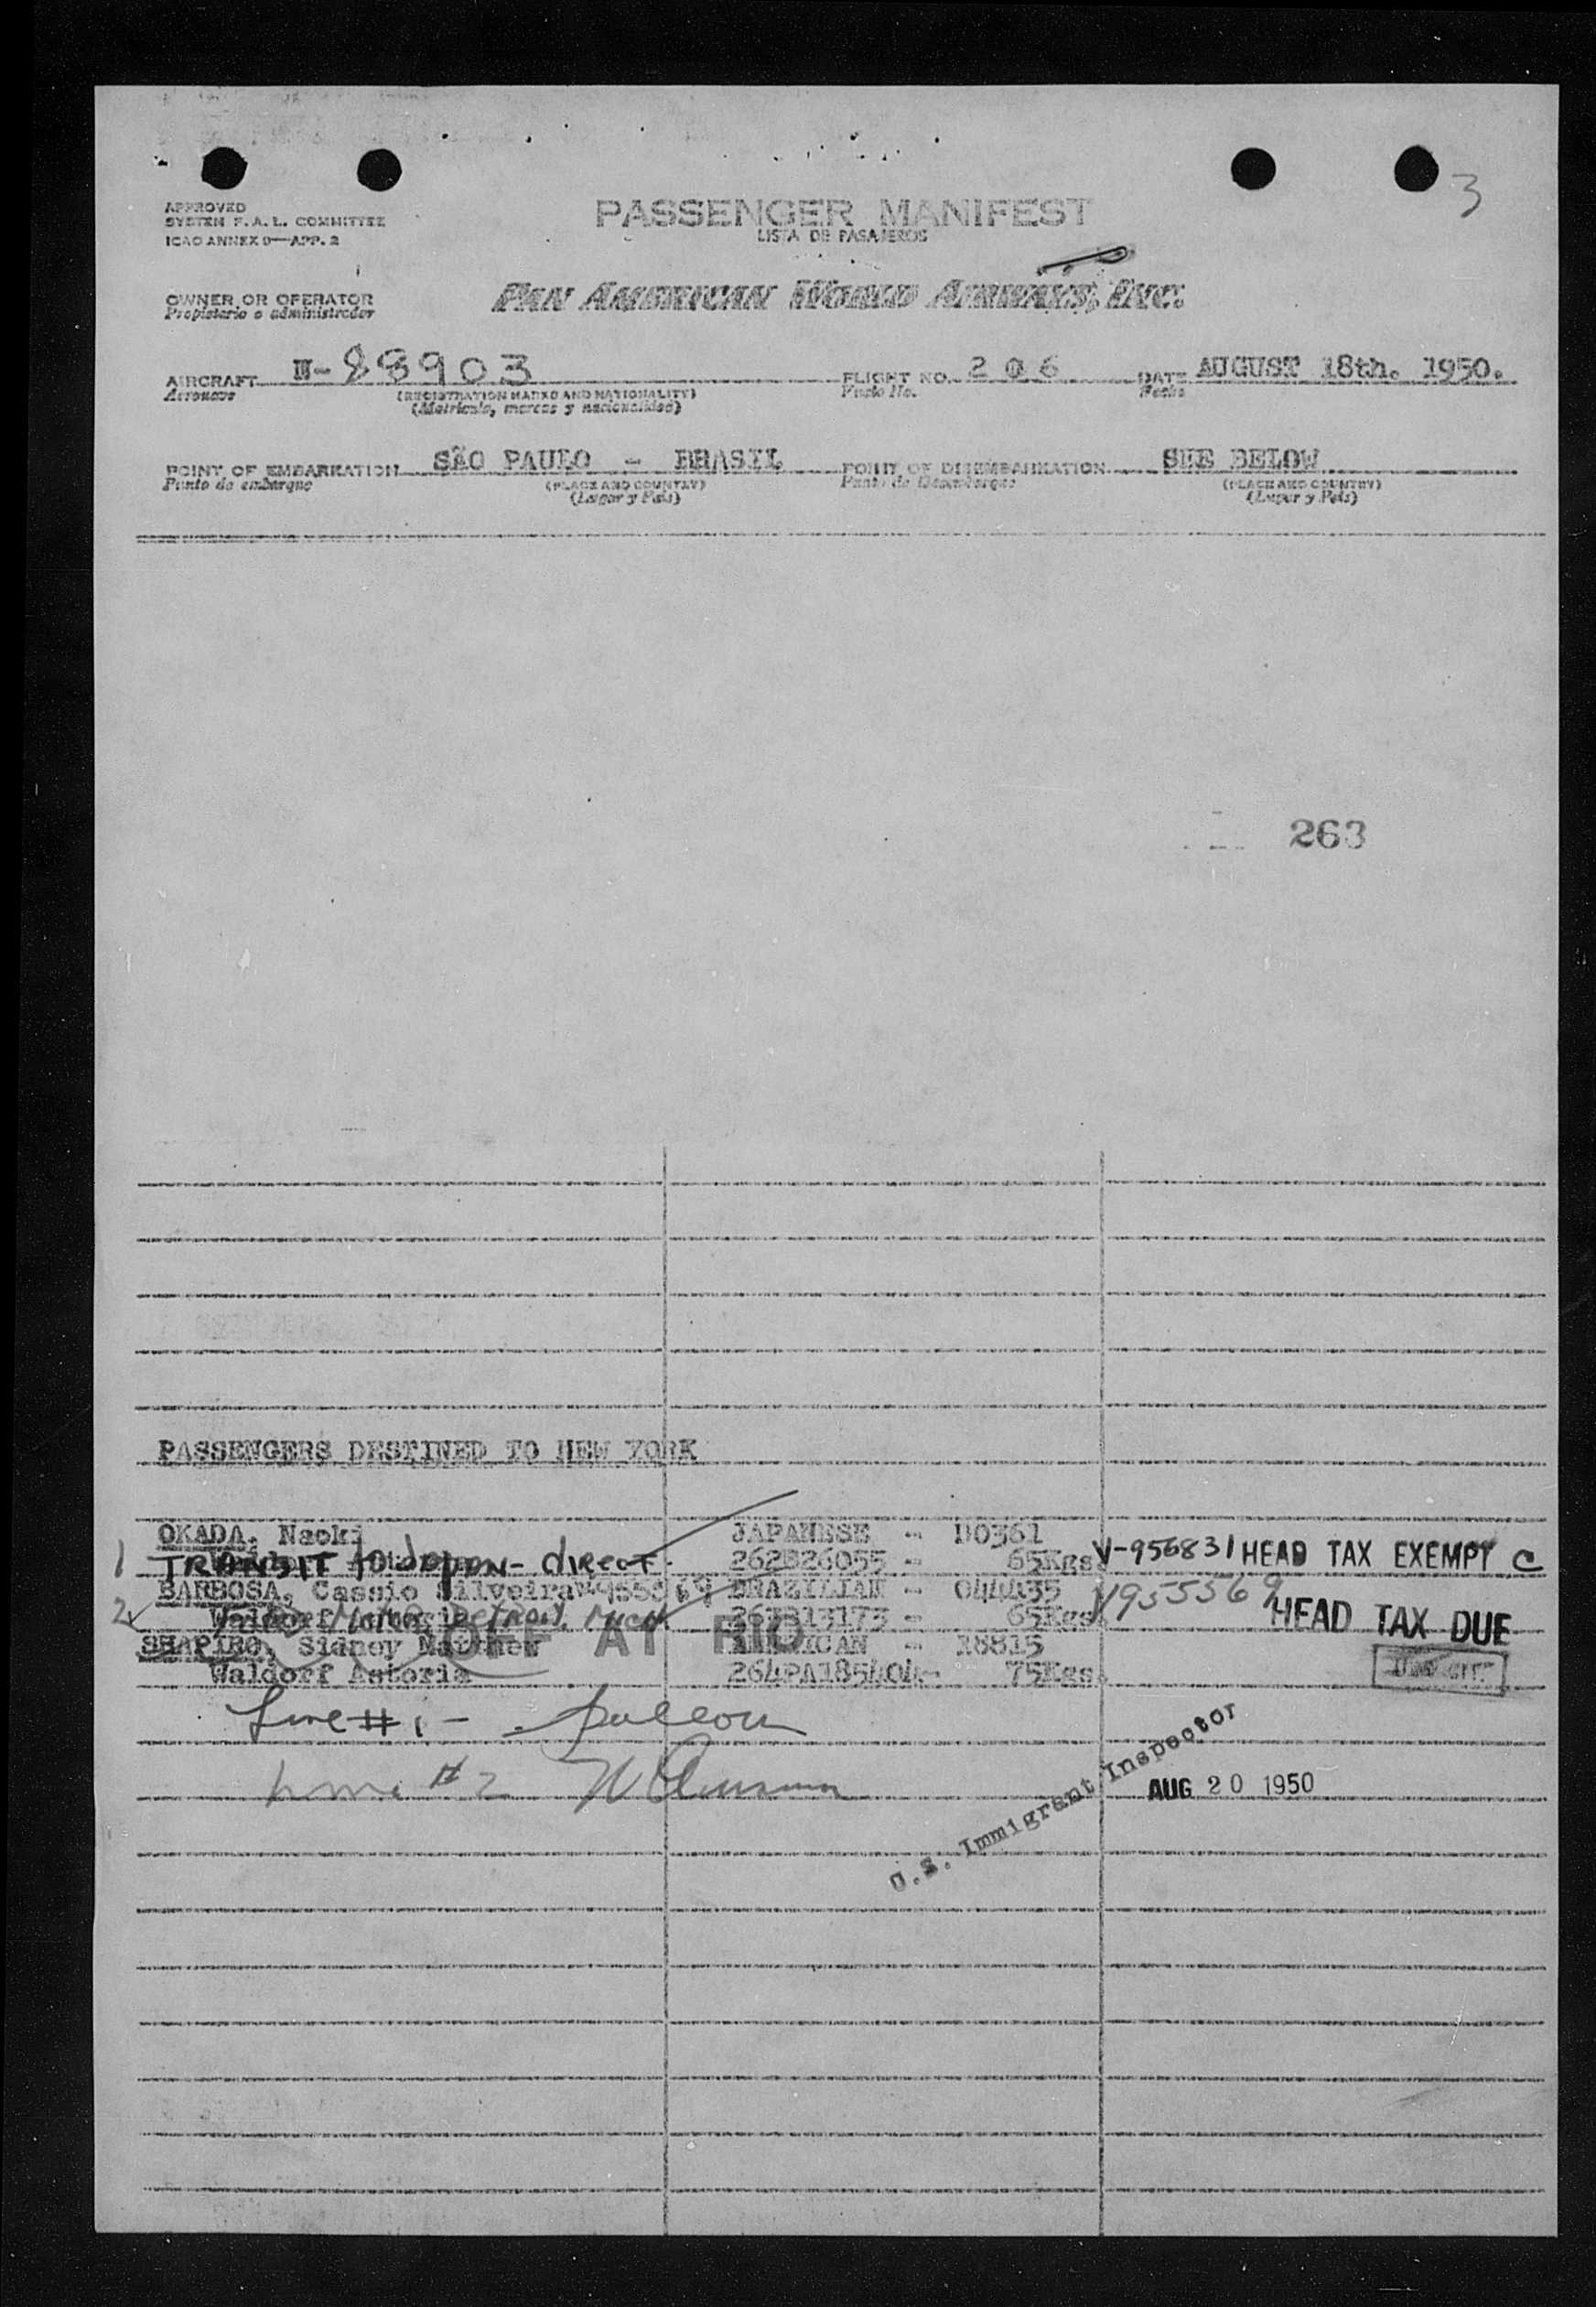 3
APPROVED
SYSTEM F.A.L. COMMITTEE
ICAO ANNEX 9—APP. 2
PASSENGER MANIFEST
LISTA DE PASAJEROS
OWNER OR OPERATOR
Propietario o administrador
PAN AMERICAN WORLD AIRWAYS, INC.
AIRCRAFT N-88903 FLIGHT NO. 206 DATE AUGUST 18th. 1950.
Aeronave (REGISTRATION MARKS AND NATIONALITY) Vuelo No. Fecha
(Matricula, marcas y nacionalidad)
POINT OF EMBARKATION SÃO PAULO - BRASIL POINT OF DISEMBARKATION SEE BELOW
Punto de embarque (PLACE AND COUNTRY) Punto de Desembarque (PLACE AND COUNTRY)
(Lugar y País) (Lugar y País)
263
PASSENGERS DESTINED TO NEW YORK
OKADA, Naoki JAPANESE - D0361
1 TRANSIT to Japan - direct 262B26055 - 65Kgs V-956831 HEAD TAX EXEMPT C
BARBOSA, Cassio Silveira V955569 BRAZILIAN - 044435 V955569
2 Detroit, Mich 263B13173 - 65Kgs HEAD TAX DUE
SHAPIRO, Sidney Matthew OFF AT RIO - 18815
Waldorf Astoria 264PA185404 - 75Kgs.
Line #1 -
Line #2
U.S. Immigrant Inspector
AUG 20 1950